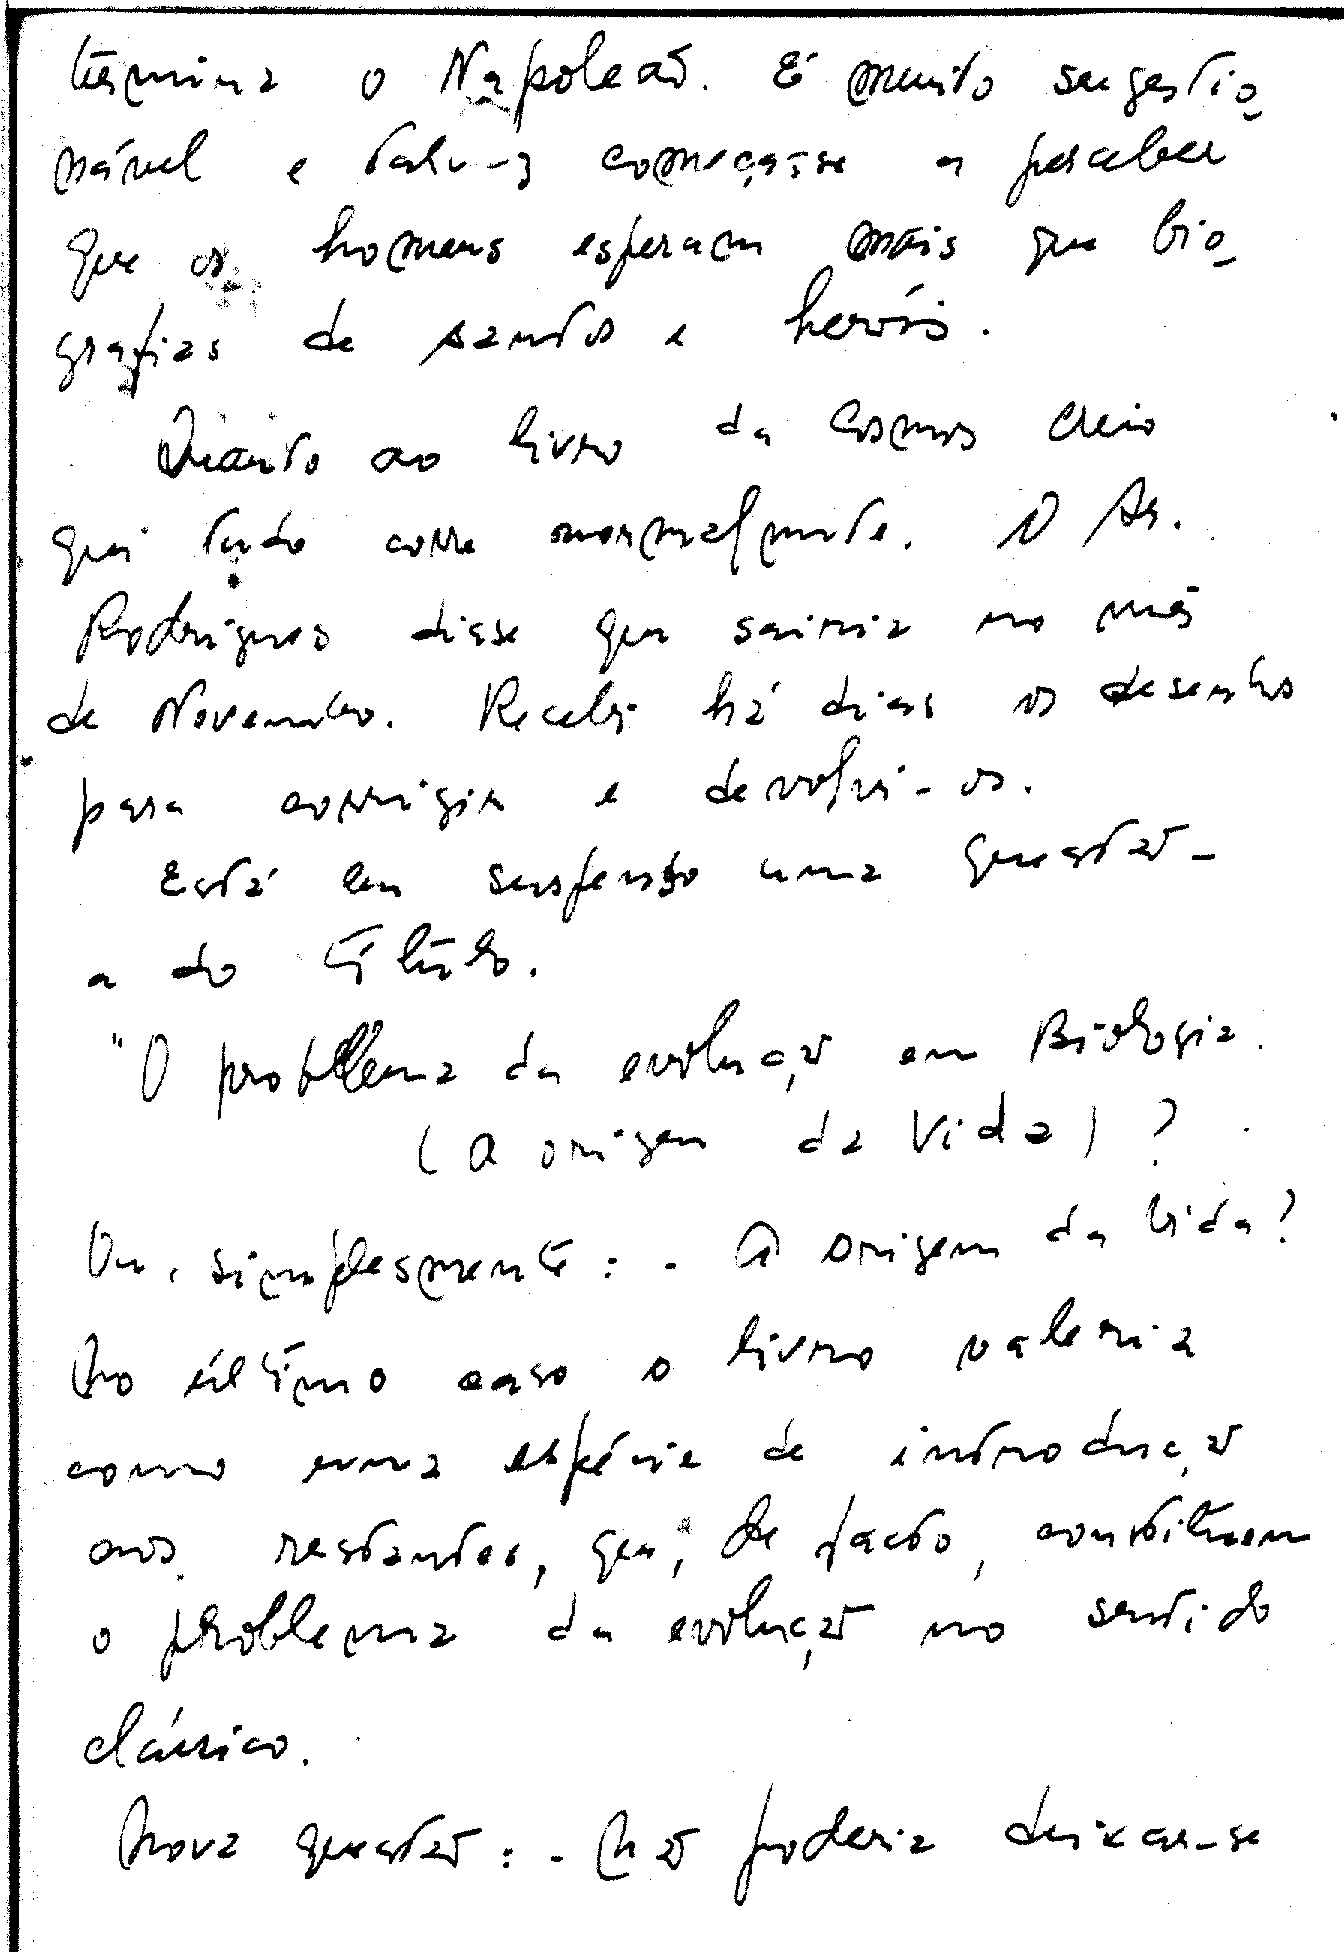 termina o Napoleão. É muito sugestio-
nável e talvez começasse a perceber
que os homens esperam mais que bio-
grafias de santos e heróis.
Quanto ao livro da Cosmos creio
que tudo corre normalmente. O Sr.
Rodrigues disse que sairia no mês
de Novembro. Recebi há dias os desenhos
para corrigir e devolvi-os.
Está em suspenso uma questão -
a do título.
"O problema da evolução em Biologia.
(A origem da Vida) ?
Ou, simplesmente: - A origem da Vida?
No último caso o livro valeria
como uma espécie de introdução
aos restantes, que, de facto, constituem
o problema da evolução no sentido
clássico.
Nova questão: - Não poderia deixar-se